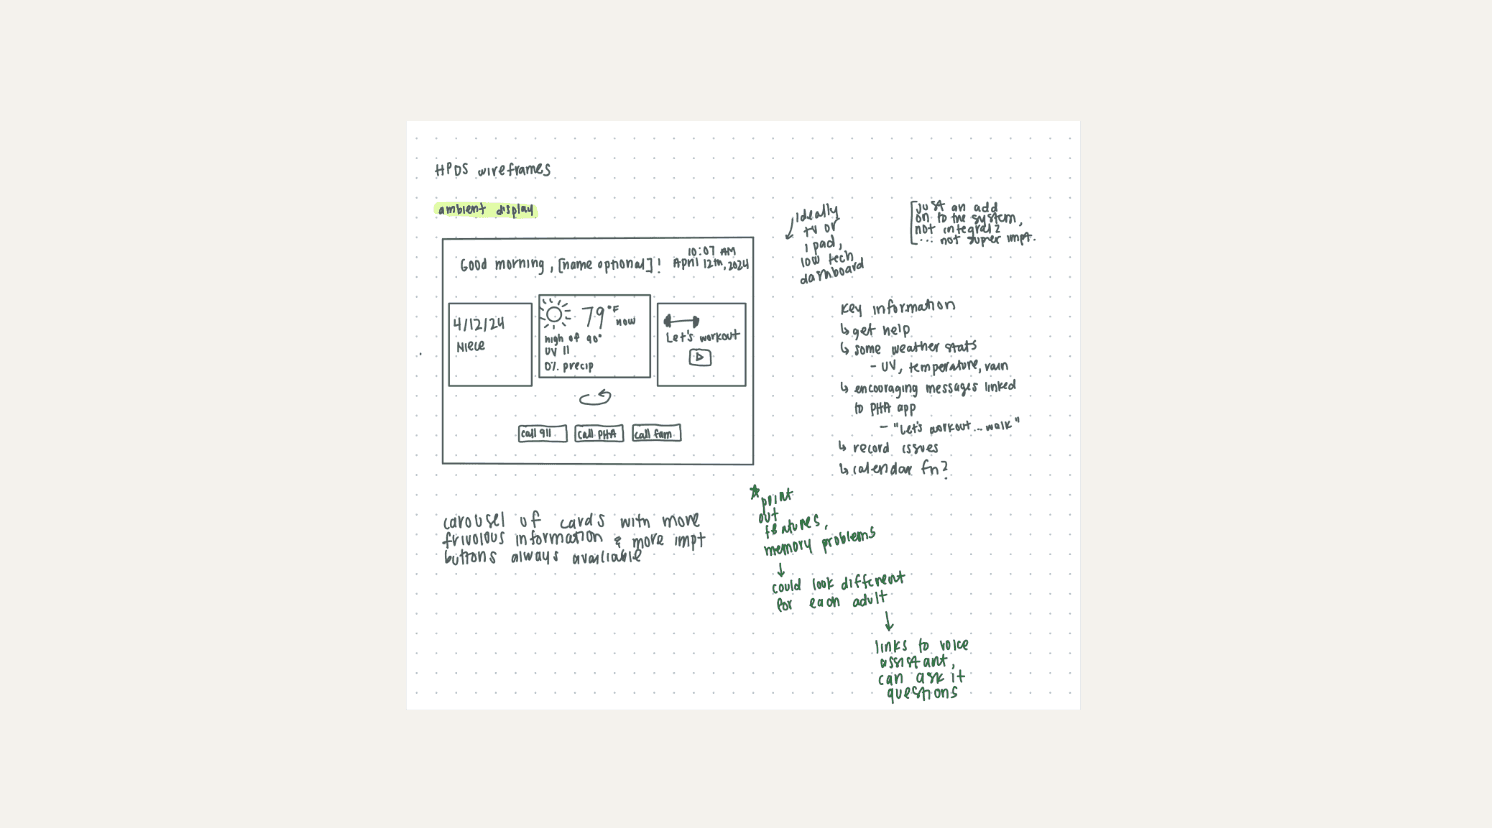 HPDS wireframes
ambient display
10:07 AM
Good morning, [name optional]! April 12th, 2024
4/12/24
Niece
79°F now
high of 90°
UV 11
0% precip
Let's workout
call 911
call PHA
call fam.
carousel of cards with more
frivolous information & more impt
buttons always available
ideally
tv or
ipad,
low tech
dashboard
just an add
on to the system,
not integral?
... not super impt.
Key information
↳ get help
↳ some weather stats
- UV, temperature, rain
↳ encouraging messages linked
to PHA app
- "Let's workout... walk"
↳ record issues
↳ calendar fn?
* point
out
features,
memory problems
↓
could look different
for each adult
↓
links to voice
assistant,
can ask it
questions